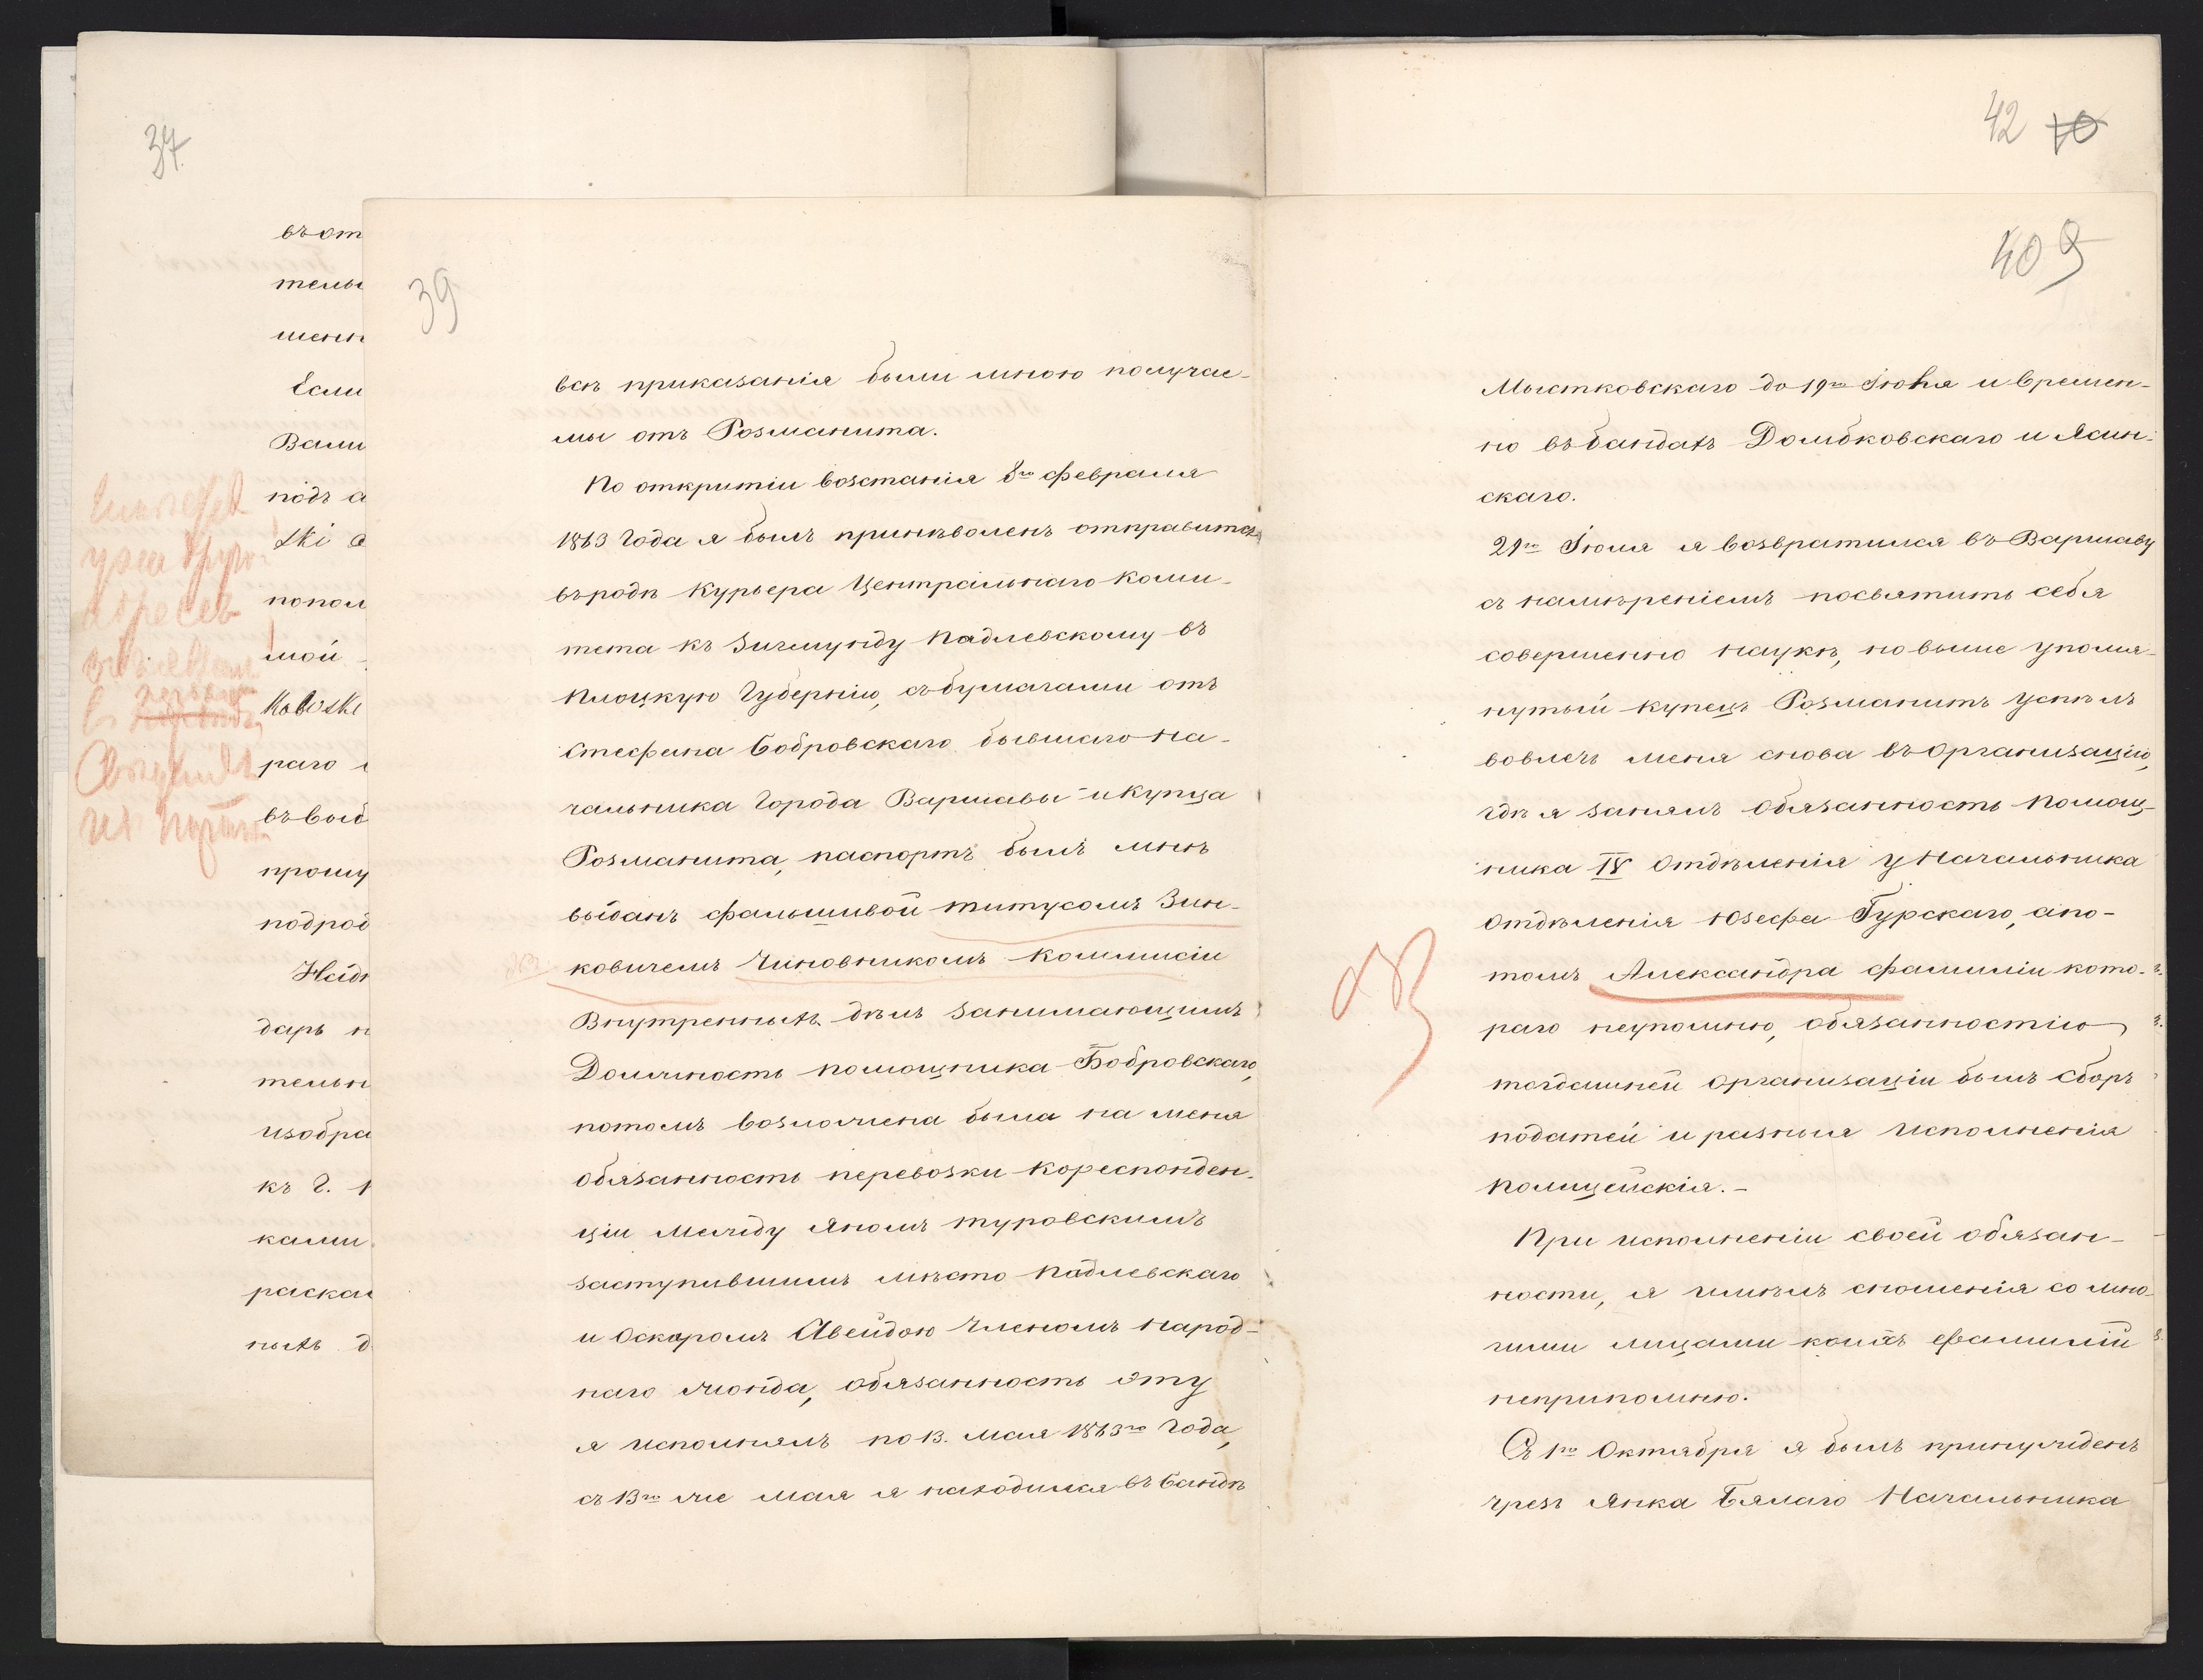 37.
въ от
тель
шен
Если
Вами
подъ а
ski
попол
мой
Kaboski
раго
въ выд
прошу
подроб
Найд
дарь н
тельн
изобра
къ Г.
ками
раская
ныхъ д
уже друго
адресъ
39
всѣ приказанія были мною получае-
мы отъ Розманита.
По открытіи возстанія 8го февраля
1863 года я былъ приневоленъ отправится
въ родѣ Курьера Центральнаго Коми-
тета къ Зигмунду Падлевскому въ
Плоцкую Губернію, съ бумагами отъ
Стефана Бобровскаго бывшаго На-
чальника Города Варшавы и Купца
Розманита, паспортъ былъ мнѣ
выданъ фальшивой титусомъ Зин-
ковичемъ Чиновникомъ Коммисіи
Внутреннихъ дѣлъ занимающимъ
Должность помощника Бобровскаго,
потомъ возложена была на меня
обязанность перевозки кореспонден-
ціи между Яномъ туровскимъ
заступившимъ мѣсто Падлевскаго
и Оскаромъ Авейдою Членомъ Народ-
наго жонда, обязанность эту
я исполнялъ по 13. Мая 1863го Года,
съ 13го же мая я находился въ бандѣ
42 40
40 9
Мыстковскаго до 19го Іюня и времен-
но въ бандахъ Домбковскаго и Ясин-
скаго.
21го Іюля я возвратился въ Варшаву
съ намѣреніемъ посвятить себя
совершенно наукѣ, но выше упомя-
нутый купецъ Розманитъ успѣлъ
вовлечь меня снова въ Организацію,
гдѣ я занялъ обязанность Помощ-
ника IV Отдѣленія у Начальника
Отдѣленія Юзефа Гурскаго, а по-
томъ Александра фамиліи кото-
раго неупомню, обязанностію
тогдашней Организаціи былъ сборъ
податей и разныя исполненія
полицейскія.-
При исполненіи своей обязан-
ности, я имѣлъ сношенія со мно-
гими лицами коихъ фамилій
неприпомню.
Съ 1го Октября я былъ принужденъ
чрезъ Янка Бялаго Начальника